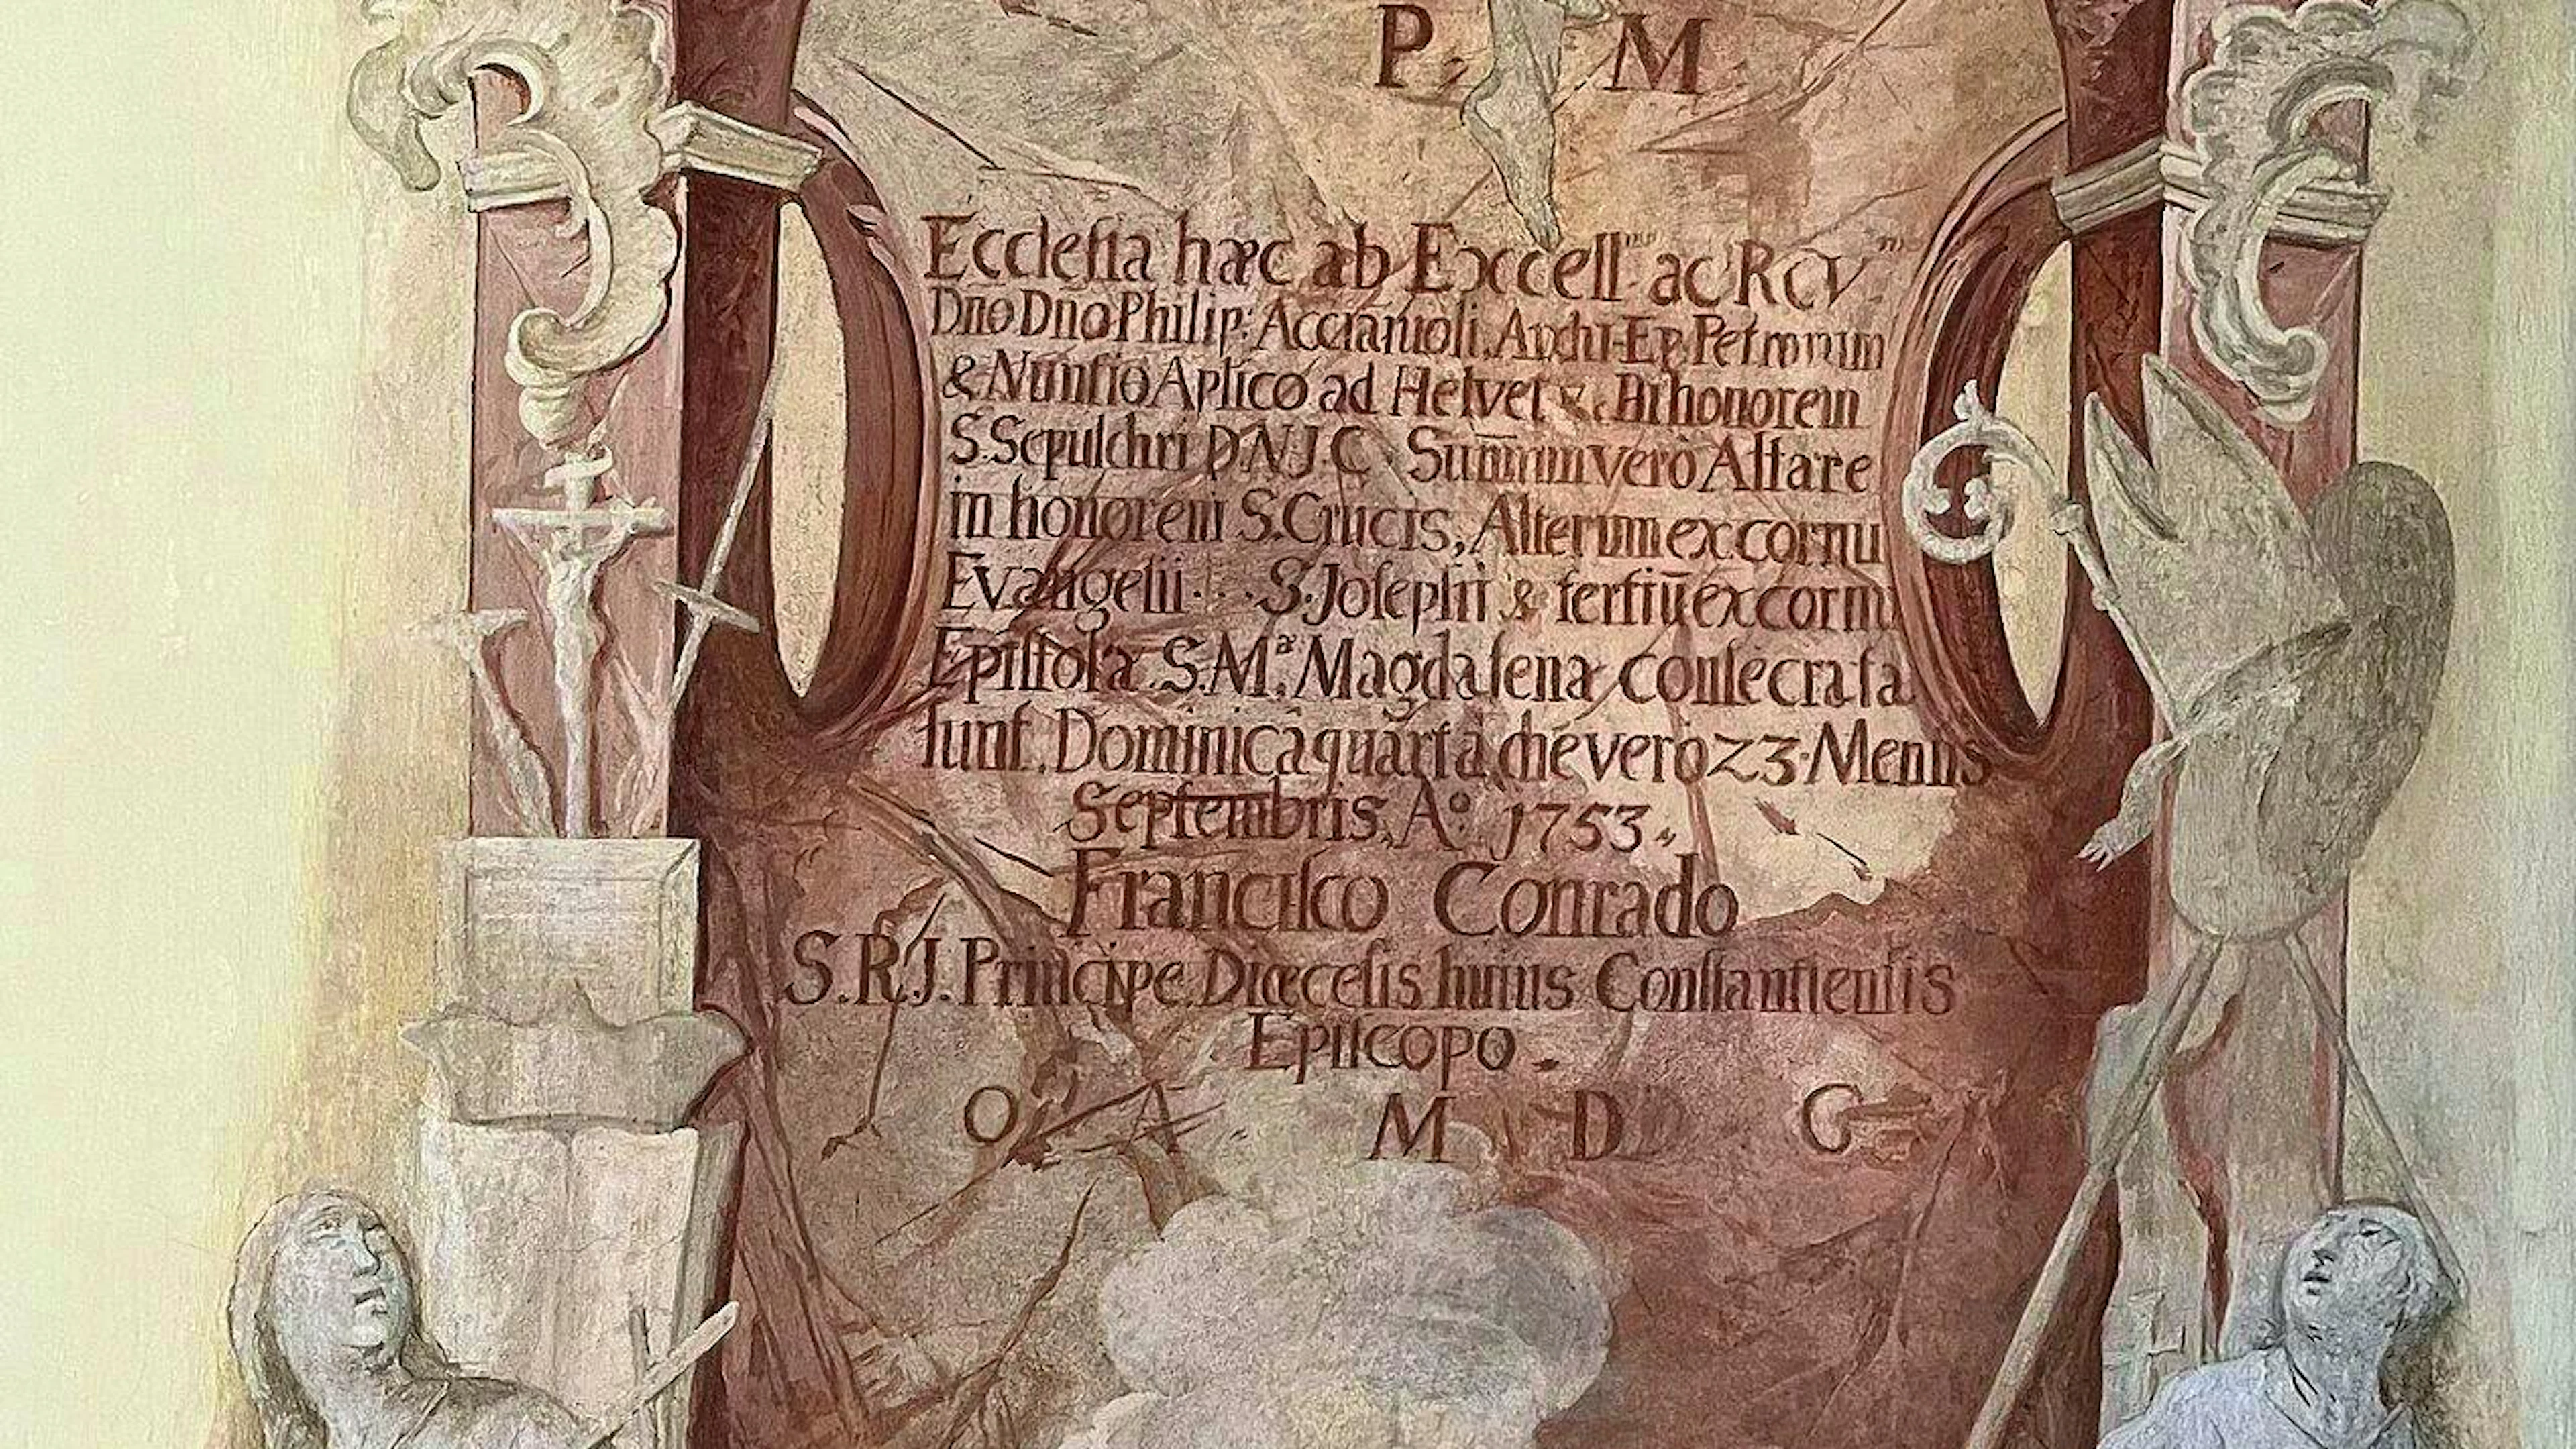 P. M
Ecclesia hæc ab Excell.mo ac Rev.mo
Dno Dno Philip: Acciaiuoli, Archi-Ep. Petrarum
& Nuntio Aplico ad Helvet &c. honorem
S. Sepulchri D.N.J.C. Sum̄um vero Altare
in honorem S. Crucis, Alterum ex cornu
Evangelii S. Josephi & tertiū ex cornu
Epistolæ S. M.ª Magdalenæ consecrata
sunt. Dominicâ quartâ, die vero 23. Mensis
Septembris, A.º 1753.
Francisco Conrado
S.R.J. Principe Diœcesis huius Constantiensis
Episcopo.
O A M D G